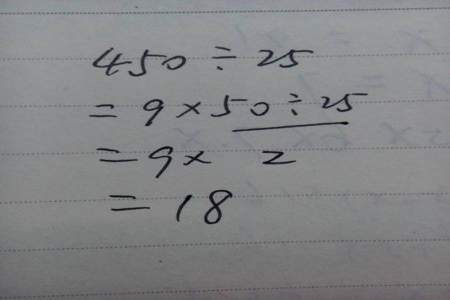 450÷25
=9×50÷25
=9× 2
=18